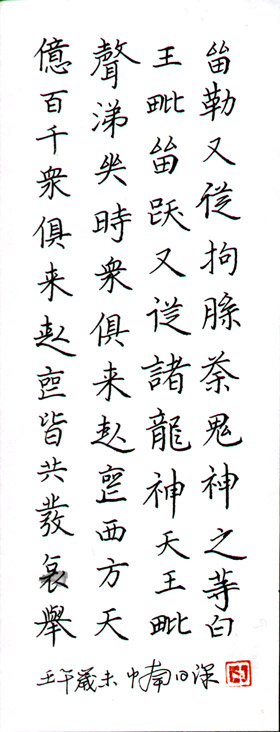 留勒叉從拘荼鬼神之等白
王毗留叉從諸龍神天王毗
聲涕哭時衆俱来赴西方天
億百千衆俱来赴皆共發哀舉
壬午歲末